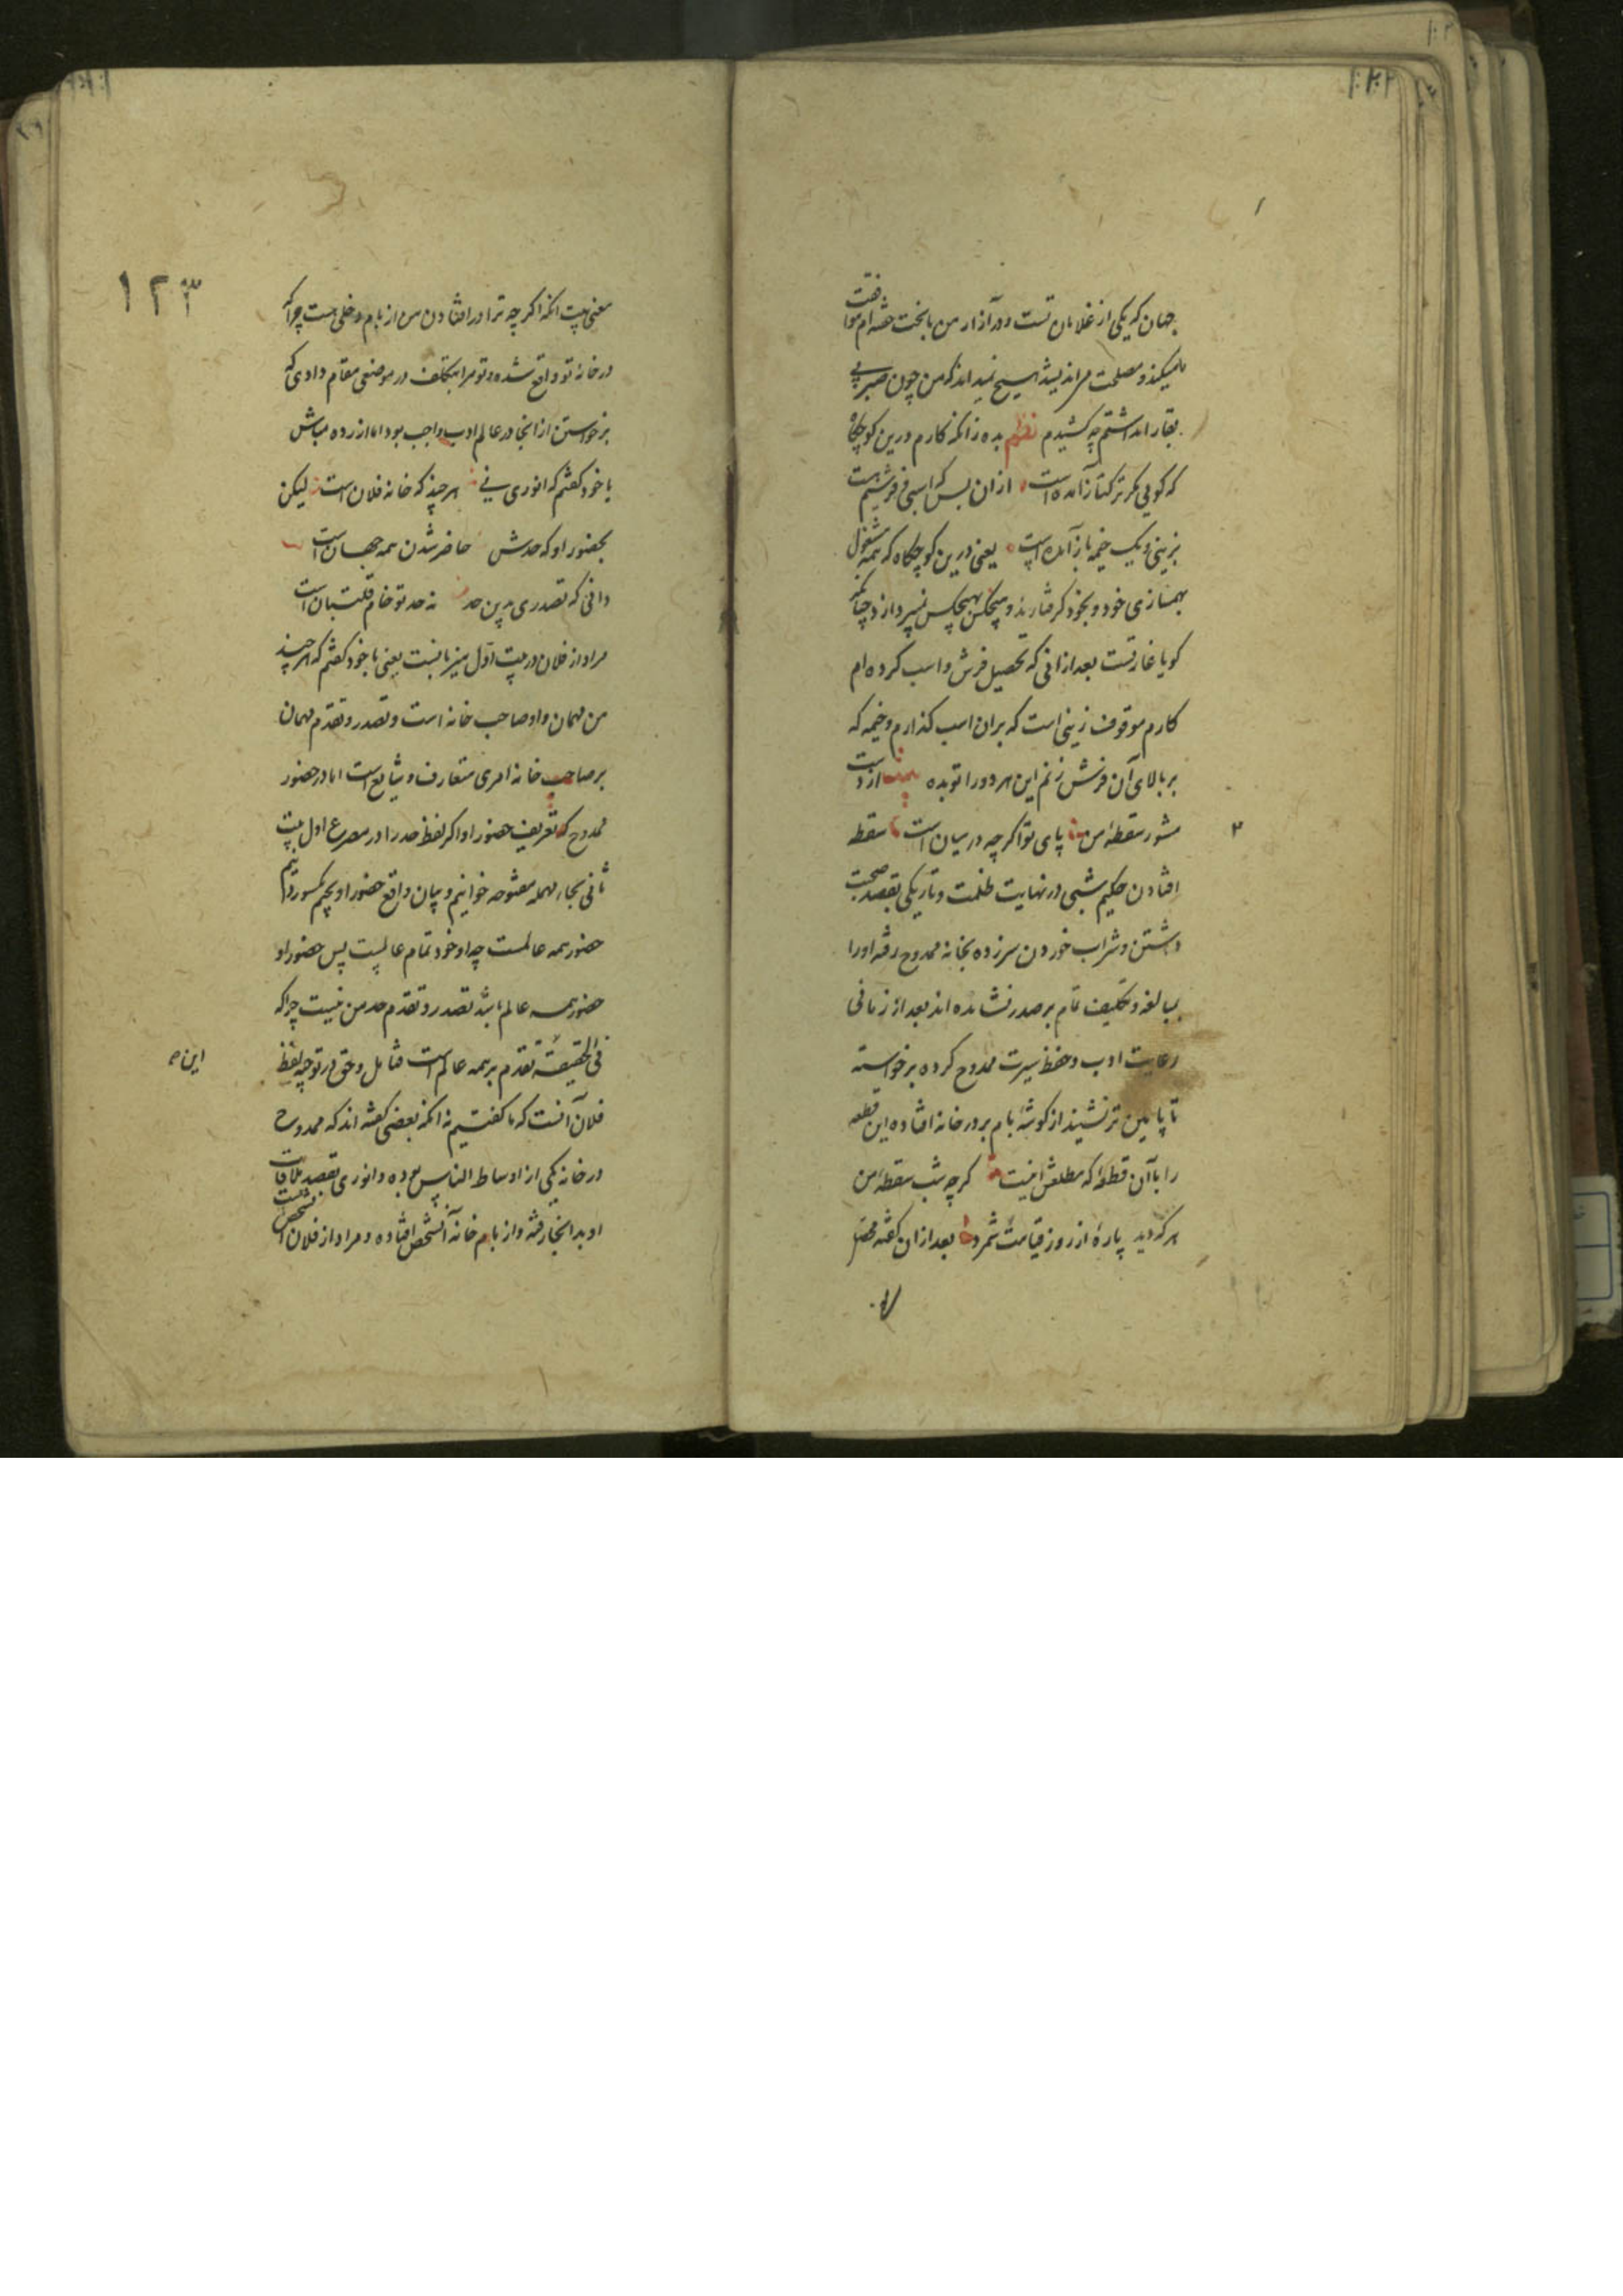 جهان که یکی از غلامان تست و در آزار من با بخت خفته ام موافقت
مینکند و مصلحت مر اندیشد هیچ نمیداند که من چون صبر بی
بقا را داشتم چه کشیدم نظم بده زانکه کارم درین کوچگاه
که کویی مکر ترکتاز آمده است از ان پس که اسبی و فرشیم هست
بزینی و یک خیمه باز آمده است یعنی درین کوچگاه که همه مشغول
بهمسازی خود و بخود گرفتارند و هیچکس بهیچکس نمیپردازد چنانکه
کویا غارتست بعد ازانی که تحصیل فرش و اسب کرده ام
کارم موقوف زینی است که بران اسب گذارم و خیمه که
بر بالای آن فرش زنم این هر دو را تو بده از دست
مشو ر سقطهٔ من پای تو اگر چه در میان است سقطه
افتادن حکیم شبی در نهایت ظلمت و تاریکی بقصد صحبت
داشتن و شراب خوردن سرزده بخانه ممدوح رفته او را
بمبالغه و تکلیف تمام بر صدر نشانده اند بعد از زمانی
رعایت ادب و حفظ سیرت ممدوح کرده برخواسته
تا پایین تر نشیند از کوشهٔ بام بر در خانه افتاده این قطعه
را با آن قطعه که مطلعش اینست کرچه شب سقطهٔ من
هر که دید پارهٔ از روز قیامت شمرد بعد ازان گفته مختصر
۲
۱۲۳
معنی بیت آنکه اگر چه ترا در افتادن من از بام دخلی هست چرا که
در خانهٔ تو واقع شده و تو مرا بتکلف در موضعی مقام دادی که
برخواستن از انجا در عالم ادب واجب بود اما ازرده مباش
با خود گفتم که انوری نی هر چند که خانه فلان است لیکن
بحضور او که حدش حاضر شدن همه جهان است
دانی که تصدری بدین حد نه حد تو خام قلتبان است
مراد از فلان در بیت اول میزبانست یعنی با خود گفتم که هر چند
من مهمان و او صاحب خانه است و تصدر و تقدم مهمان
بر صاحب خانه امری متعارف و شایع است اما در حضور
ممدوح که تعریف حضور او اگر لفظ حد را در مصرع اول بیت
ثانی بحاء مهمله مفتوحه خوانیم و بیان واقع حضور او بجیم مکسور دانیم
حضور همه عالمست چه او خود تمام عالمیست پس حضور او
حضور همه عالم باشد تصدر و تقدم حد من نیست چرا که
فی الحقیقة تقدم بر همه عالم است فتامل و حق در توجیه لفظ
این ه
فلان آنست که ما گفتیم نه آنکه بعضی گفته اند که ممدوح
در خانه یکی از اوساط الناس بوده و انوری بقصد ملاقات
او بدانجا رفته و از بام خانه آنشخص افتاده و مراد از فلان آنشخص است